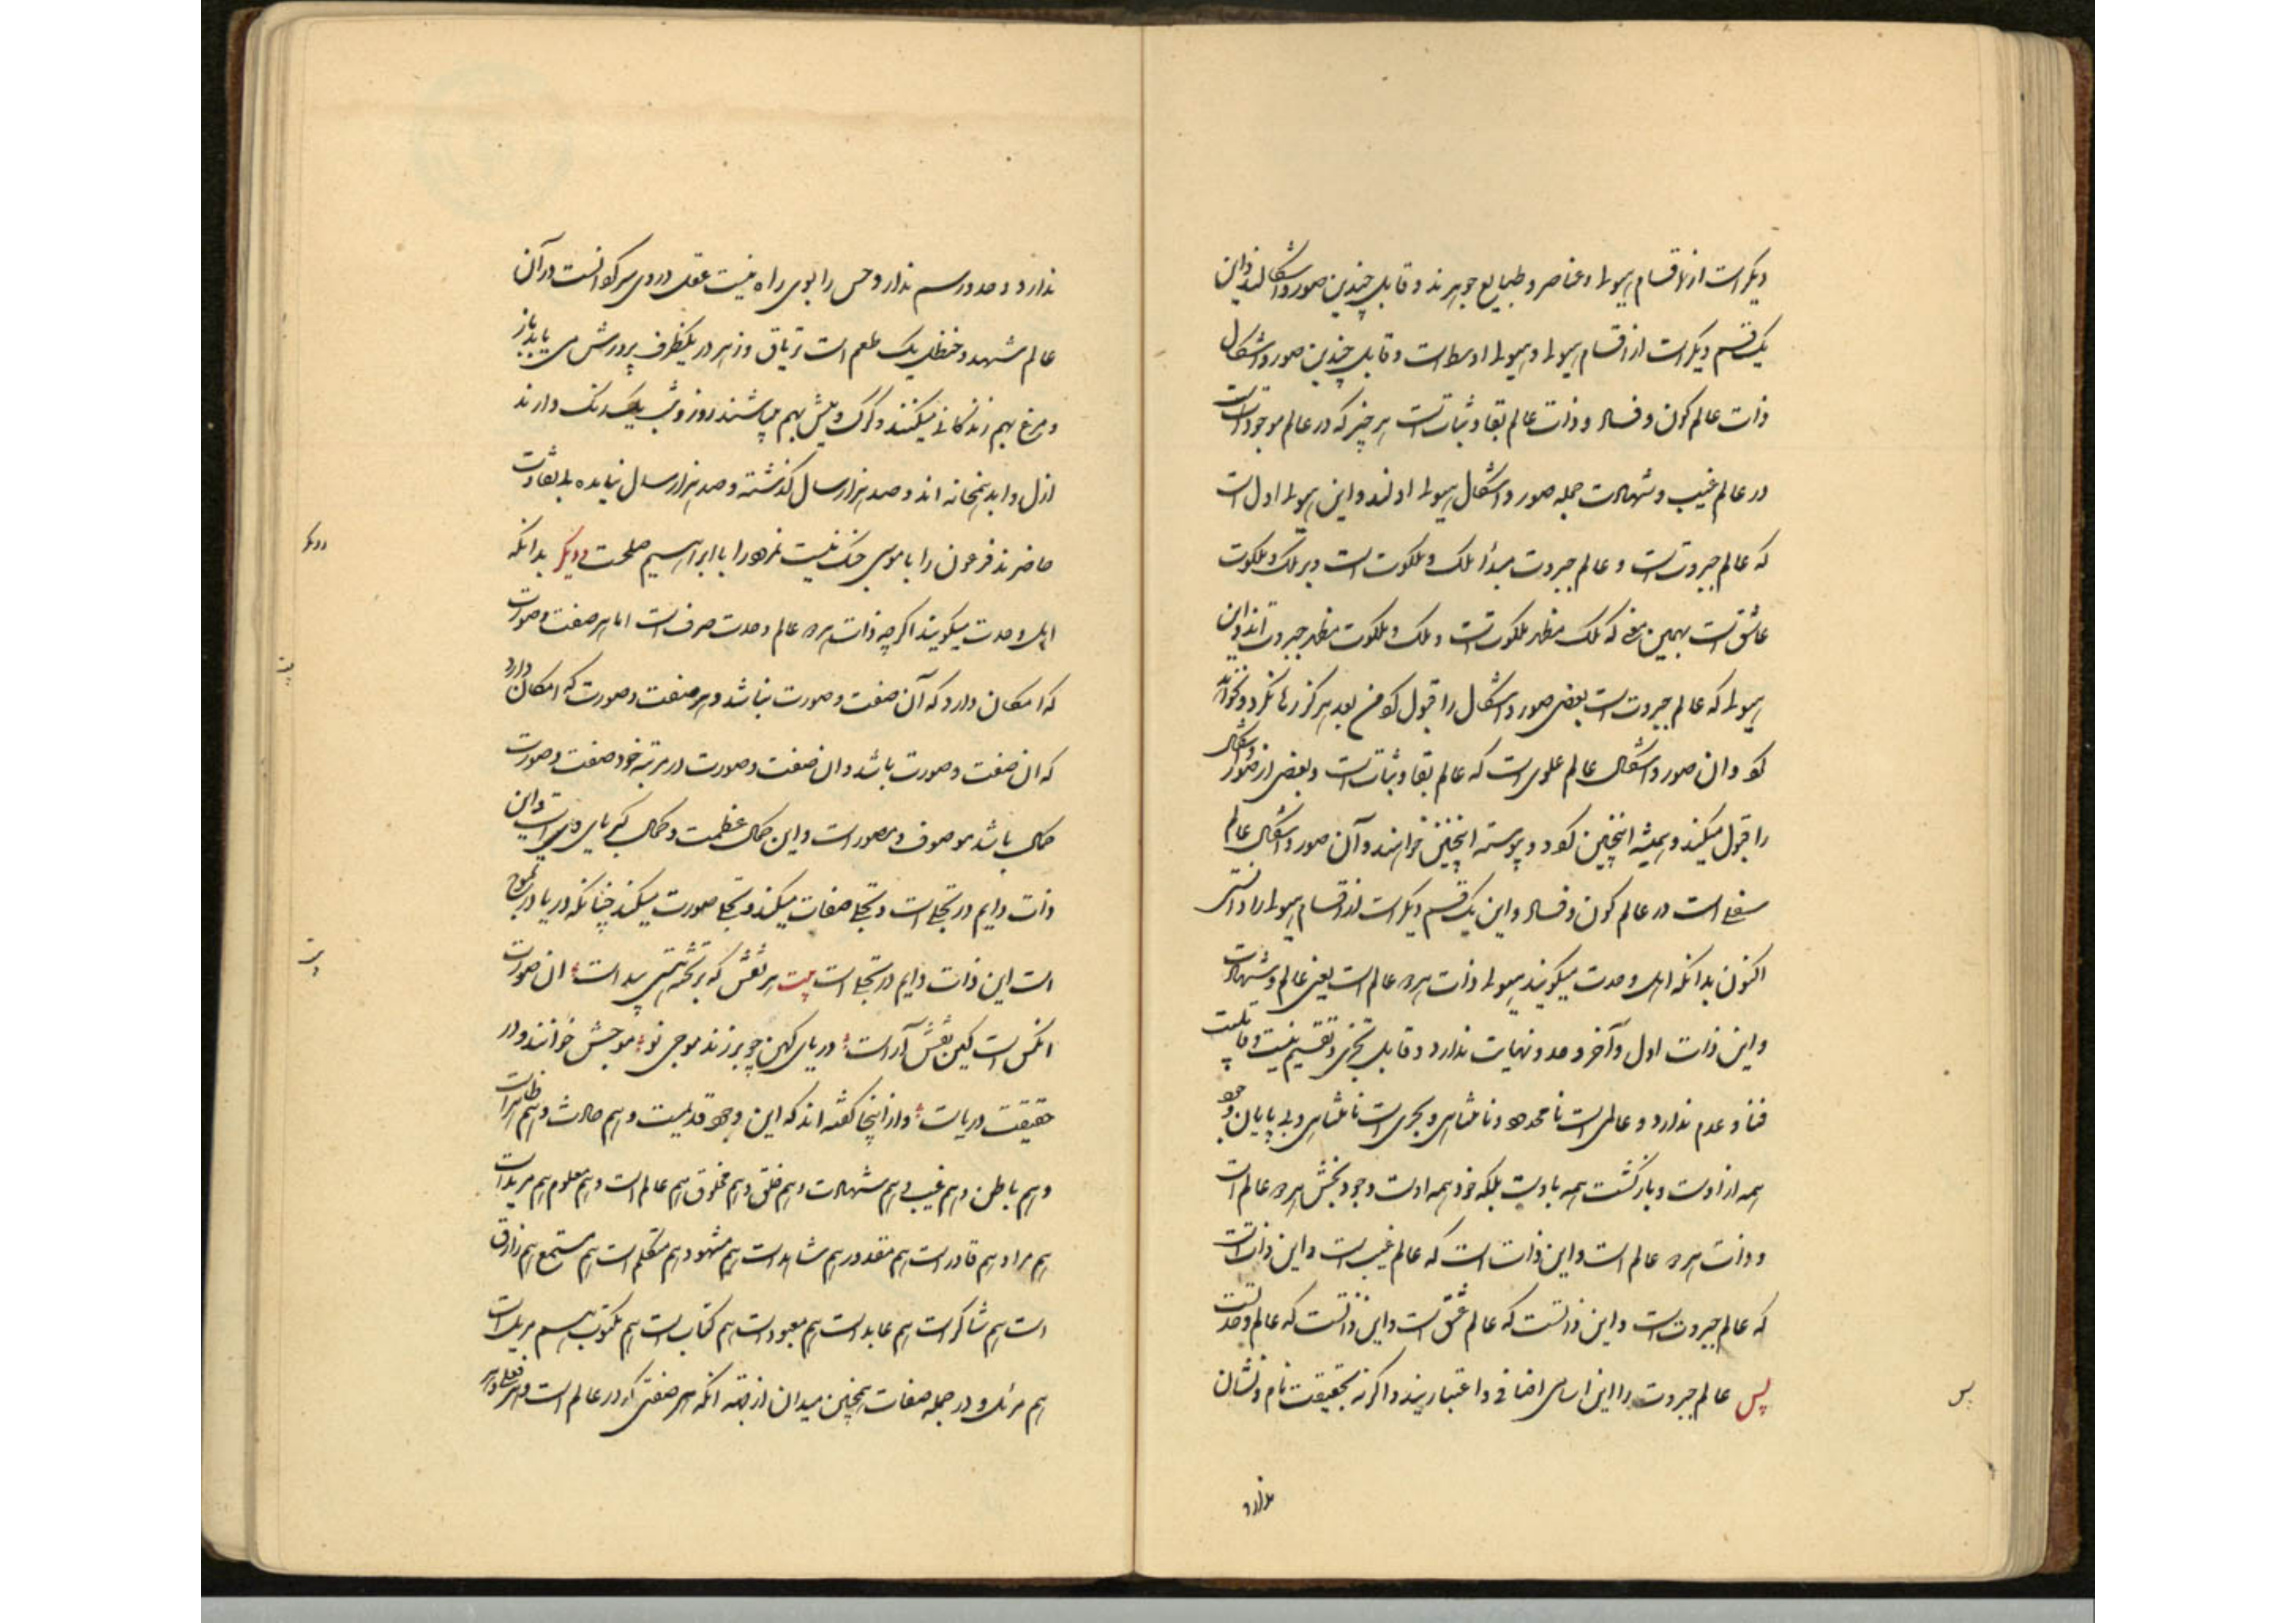 دیکر است از اقسام هیولا و عناصر و طبایع جوهرند و قابل چندین صور و اشکالند و این
یک قسم دیکر است از اقسام هیولا و هیولا اوسط است و قابل چندین صور و اشکال
ذات عالم کون و فساد و ذات عالم بقا و ثبات است هر چیز که در عالم موجود است
در عالم غیب و شهادت جمله صور و اشکال هیولا اولند و این هیولا اول است
که عالم جبروت است و عالم جبروت مبدأ ملک و ملکوت است و بر ملک و ملکوت
عاشق است بهمین معنی که ملک مظهر ملکوت است و ملک و ملکوت مظهر جبروت اند و این
هیولا که عالم جبروت است بعضی صور و اشکال را قبول کرد من بعد هرکز رها نکرد و نخواهد
کرد و ان صور و اشکال عالم علوی است که عالم بقا و ثبات است و بعضی از صور و اشکال
را قبول میکند و همیشه اینچنین کرد و پیوسته اینچنین خواهند و آن صور و اشکال عالم
سفلی است در عالم کون و فساد و این یک قسم دیکر است از اقسام هیولا را دانستی
اکنون بدانکه اهل وحدت میکویند هیولا ذات هر دو عالم است یعنی عالم و شهادت
و این ذات اول و آخر و حد و نهایت ندارد و قابل تجزی و تقسیم نیست و قابلیت
فنا و عدم ندارد و عالمی است نا محدود و نا متناهی و بحری است نا متناهی و بی پایان وجود
همه از اوست و بازکشت همه باوست بلکه خود همه اوست وجود بخش هر دو عالم است
و ذات هر دو عالم است و این ذات است که عالم غیب است و این ذات است
که عالم جبروت است و این ذاتست که عالم عشق است و این ذاتست که عالم وحدتست
پس عالم جبروت را این اسامی اضافی و اعتباریند و اکر نه بحقیقت نام و نشان
پس
ندارد
ندارد و حد و رسم ندارد و حس را بوی راه نیست عقل در وی سرکردانست در آن
عالم شهد و حنظل یک طعم است تریاق و زهر در یکظرف پرورش می یابد باز
و مرغ بهم زندکانی میکنند و کرک و میش بهم میباشند روز و شب یک رنک دارند
ازل و ابد همخانه اند و صد هزار سال کذشته و صد هزار سال نیامده بی تفاوت
حاضرند فرعون را با موسی جنک نیست نمرود را با ابراهیم صلحست دیکر بدانکه
اهل وحدت میکویند اکرچه ذات هر دو عالم وحدت صرف است اما هر صفت و صورت
که امکان دارد که آن صفت و صورت نباشد و هر صفت و صورت که امکان دارد
که ان صفت و صورت باشد و ان صفت و صورت در مرتبه خود صفت و صورت
کمال باشد موصوف و مصور است و این کمال عظمت و کمال کبریایی است و این
ذات دایم در تجلی است و تجلی صفات میکند و تجلی صورت میکند چنانکه دریا در تموج
است این ذات دایم در تجلی است بیت هر نقش که بر تخته هستی پیداست ان صورت
انکس است کین نقش آراست دریای کهن چو برزند موجی نو موجش خوانند و در
حقیقت دریاست و از اینجا کفته اند که این وجود قدیمست و هم حادث و هم ظاهر است
و هم باطن و هم غیب و هم شهادت و هم خالق و هم مخلوق هم عالم است و هم معلوم هم مرید است
هم مراد و هم قادر است هم مقدور هم شاهد است هم مشهود هم متکلم است هم مستمع هم رازق
است هم شاکر است هم عابد است هم معبود است هم کتاب است هم مکتوب هم مرسل است
هم مرئی و در جمله صفات همچنین میدان از جهة انکه هر صفتی که در عالم است و هر فعلی و هر
دیکر
بیت